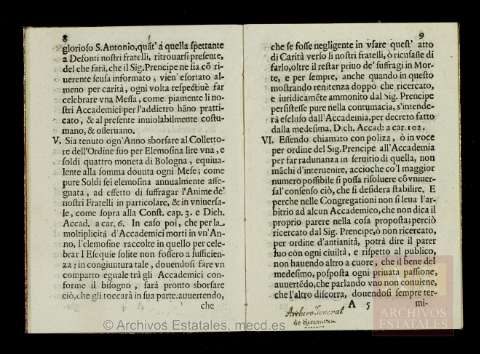 8
glorioso S. Antonio, quãt' à quella spettante
à Defonti nostri fratelli, ritrouarsi presente,
del che farà, che il Sig. Prencipe ne sia cõ ri-
uerente scusa informato, vien' esortato al-
meno per carità, ogni volta respettiuè far
celebrar vna Messa, come piamente li no-
stri Accademici per l'addietro hãno pratti-
cato, & al presente inuiolabilmente costu-
mano, & osseruano.
V. Sia tenuto ogn'Anno sborsare al Colletto-
re dell'Ordine suo per Elemosina lire vna, e
soldi quattro moneta di Bologna, equiua-
lente alla somma douuta ogni Mese; come
pure Soldi sei elemosina annualmente asse-
gnata, ad effetto di suffragar l'Anime de'
nostri Fratelli in particolare, & in vniuersa-
le, come sopra alla Const. cap. 3. e Dich.
Accad. a car. 6. In caso poi, che per la
moltiplicità d'Accademici morti in vn'An-
no, l'elemosine raccolte in quello per cele-
brar l'Essequie solite non fossero a sufficien-
za; in congiuntura tale, douendosi fare vn
comparto eguale trà gli Accademici con-
forme il bisogno, sarà pronto sborsare
ciò, che gli toccarà in sua parte. auuertendo,
che
9
che se fosse negligente in vsare quest' atto
di Carità verso li nostri fratelli, ò ricusasse di
farlo, oltre il restar priuo de' suffragi in Mor-
te, e per sempre, anche quando in questo
mostrando renitenza doppo che ricercato,
e iuridicamẽte ammonito dal Sig. Prencipe
persistesse pure nella contumacia, s'intende-
rà escluso dall'Accademia, per decreto fatto
dalla medesima. Dich. Accad: a car. 102.
VI. Essendo chiamato con poliza, ò in voce
per ordine del Sig. Prencipe all'Accademia
per far radunanza in seruitio di quella, non
mãchi d'interuenire, acciochè co'l maggior
numero possibile si possa risoluere cõ vniuer-
sal' consenso ciò, che si desidera stabilire. E
perche nelle Congregationi non si leua l'ar-
bitrio ad alcun' Accademico, che non dica il
proprio parere nella cosa proposta; perciò
ricercato dal Sig. Prencipe, ò non ricercato,
per ordine d'antianità, potrà dire il parer
suo con ogni ciuiltà, e rispetto al publico,
non hauendo altro a cuore, che il bene del
medesimo, posposta ogni priuata passione,
auuertẽdo, che parlando vno non conuiene,
che l'altro discorra, douendosi sempre ter-
A 5
mi-
Archivo General
de Simancas
© Archivos Estatales, mecd.es
ARCHIVOS
ESTATALES